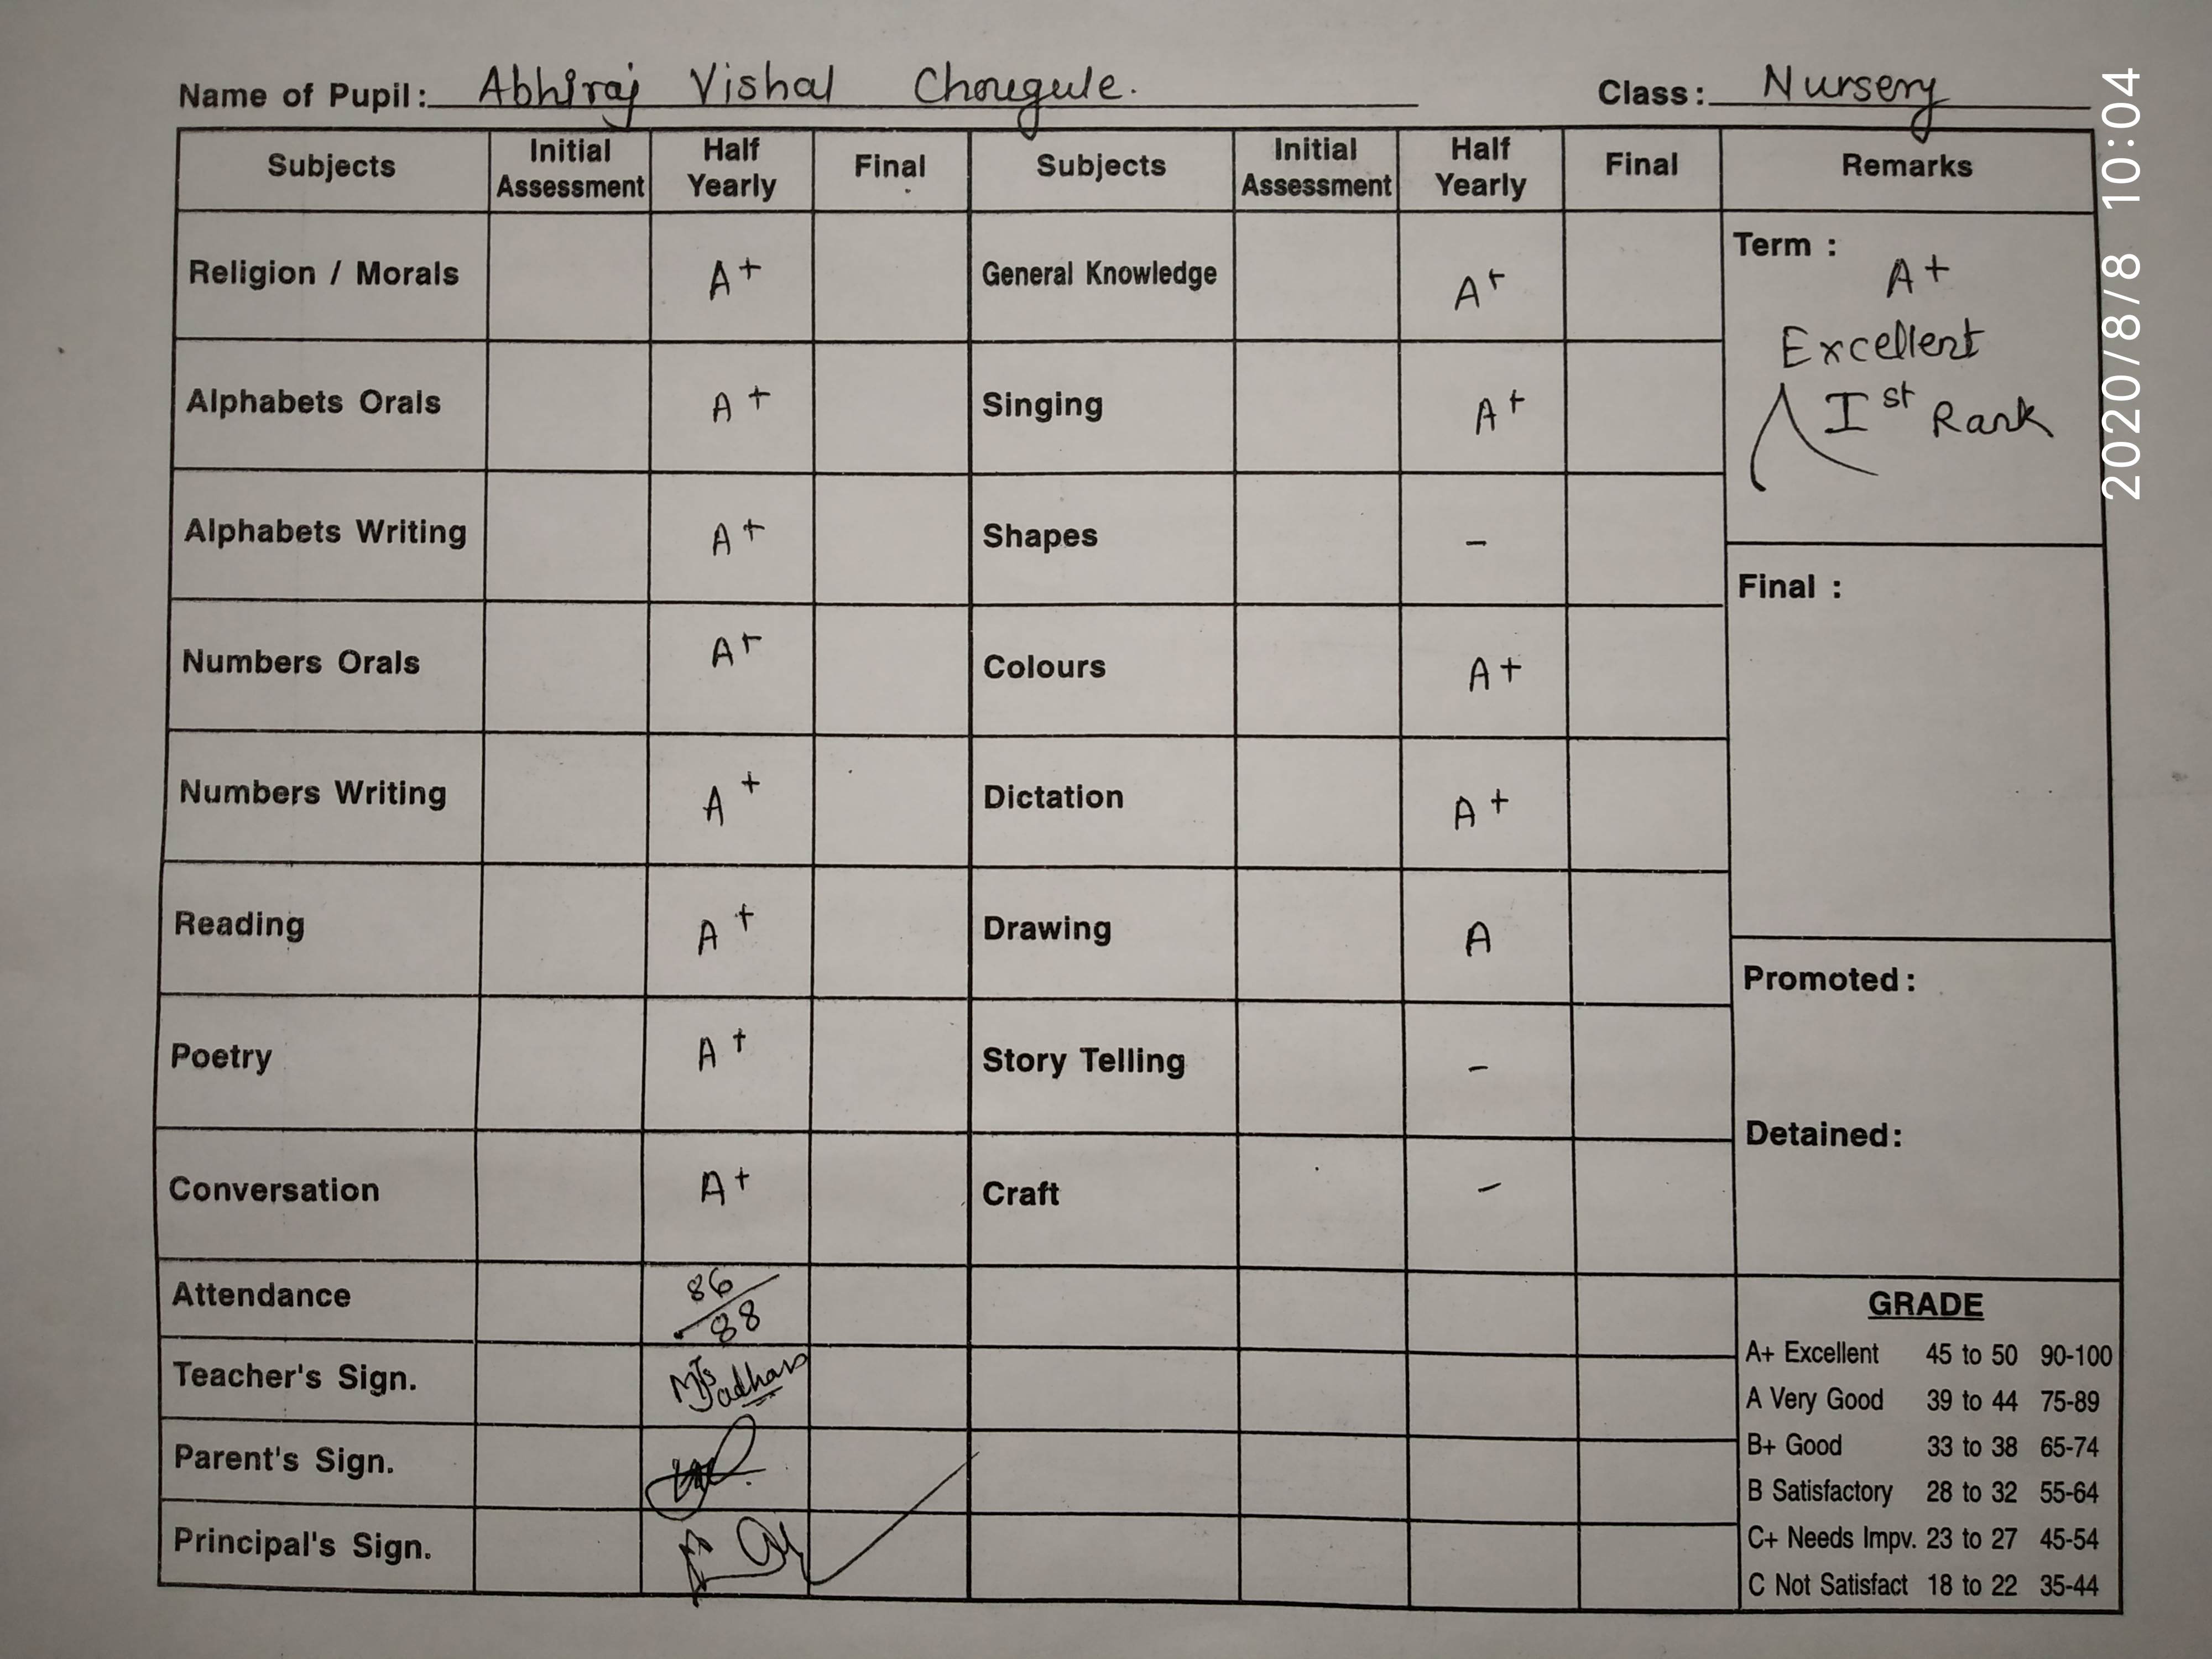 Name of Pupil: Abhiraj Vishal Chougule. Class: Nursery
Subjects Initial Assessment Half Yearly Final Subjects Initial Assessment Half Yearly Final Remarks
Religion / Morals A+ General Knowledge A+ Term : A+
Excellent
Ist Rank
Alphabets Orals A+ Singing A+
Alphabets Writing A+ Shapes –
Final :
Numbers Orals A+ Colours A+
Numbers Writing A+ Dictation A+
Reading A+ Drawing A
Promoted :
Poetry A+ Story Telling –
Detained :
Conversation A+ Craft –
Attendance 86/88
Teacher's Sign.
Parent's Sign.
Principal's Sign.
GRADE
A+ Excellent 45 to 50 90-100
A Very Good 39 to 44 75-89
B+ Good 33 to 38 65-74
B Satisfactory 28 to 32 55-64
C+ Needs Impv. 23 to 27 45-54
C Not Satisfact 18 to 22 35-44
2020/8/8 10:04